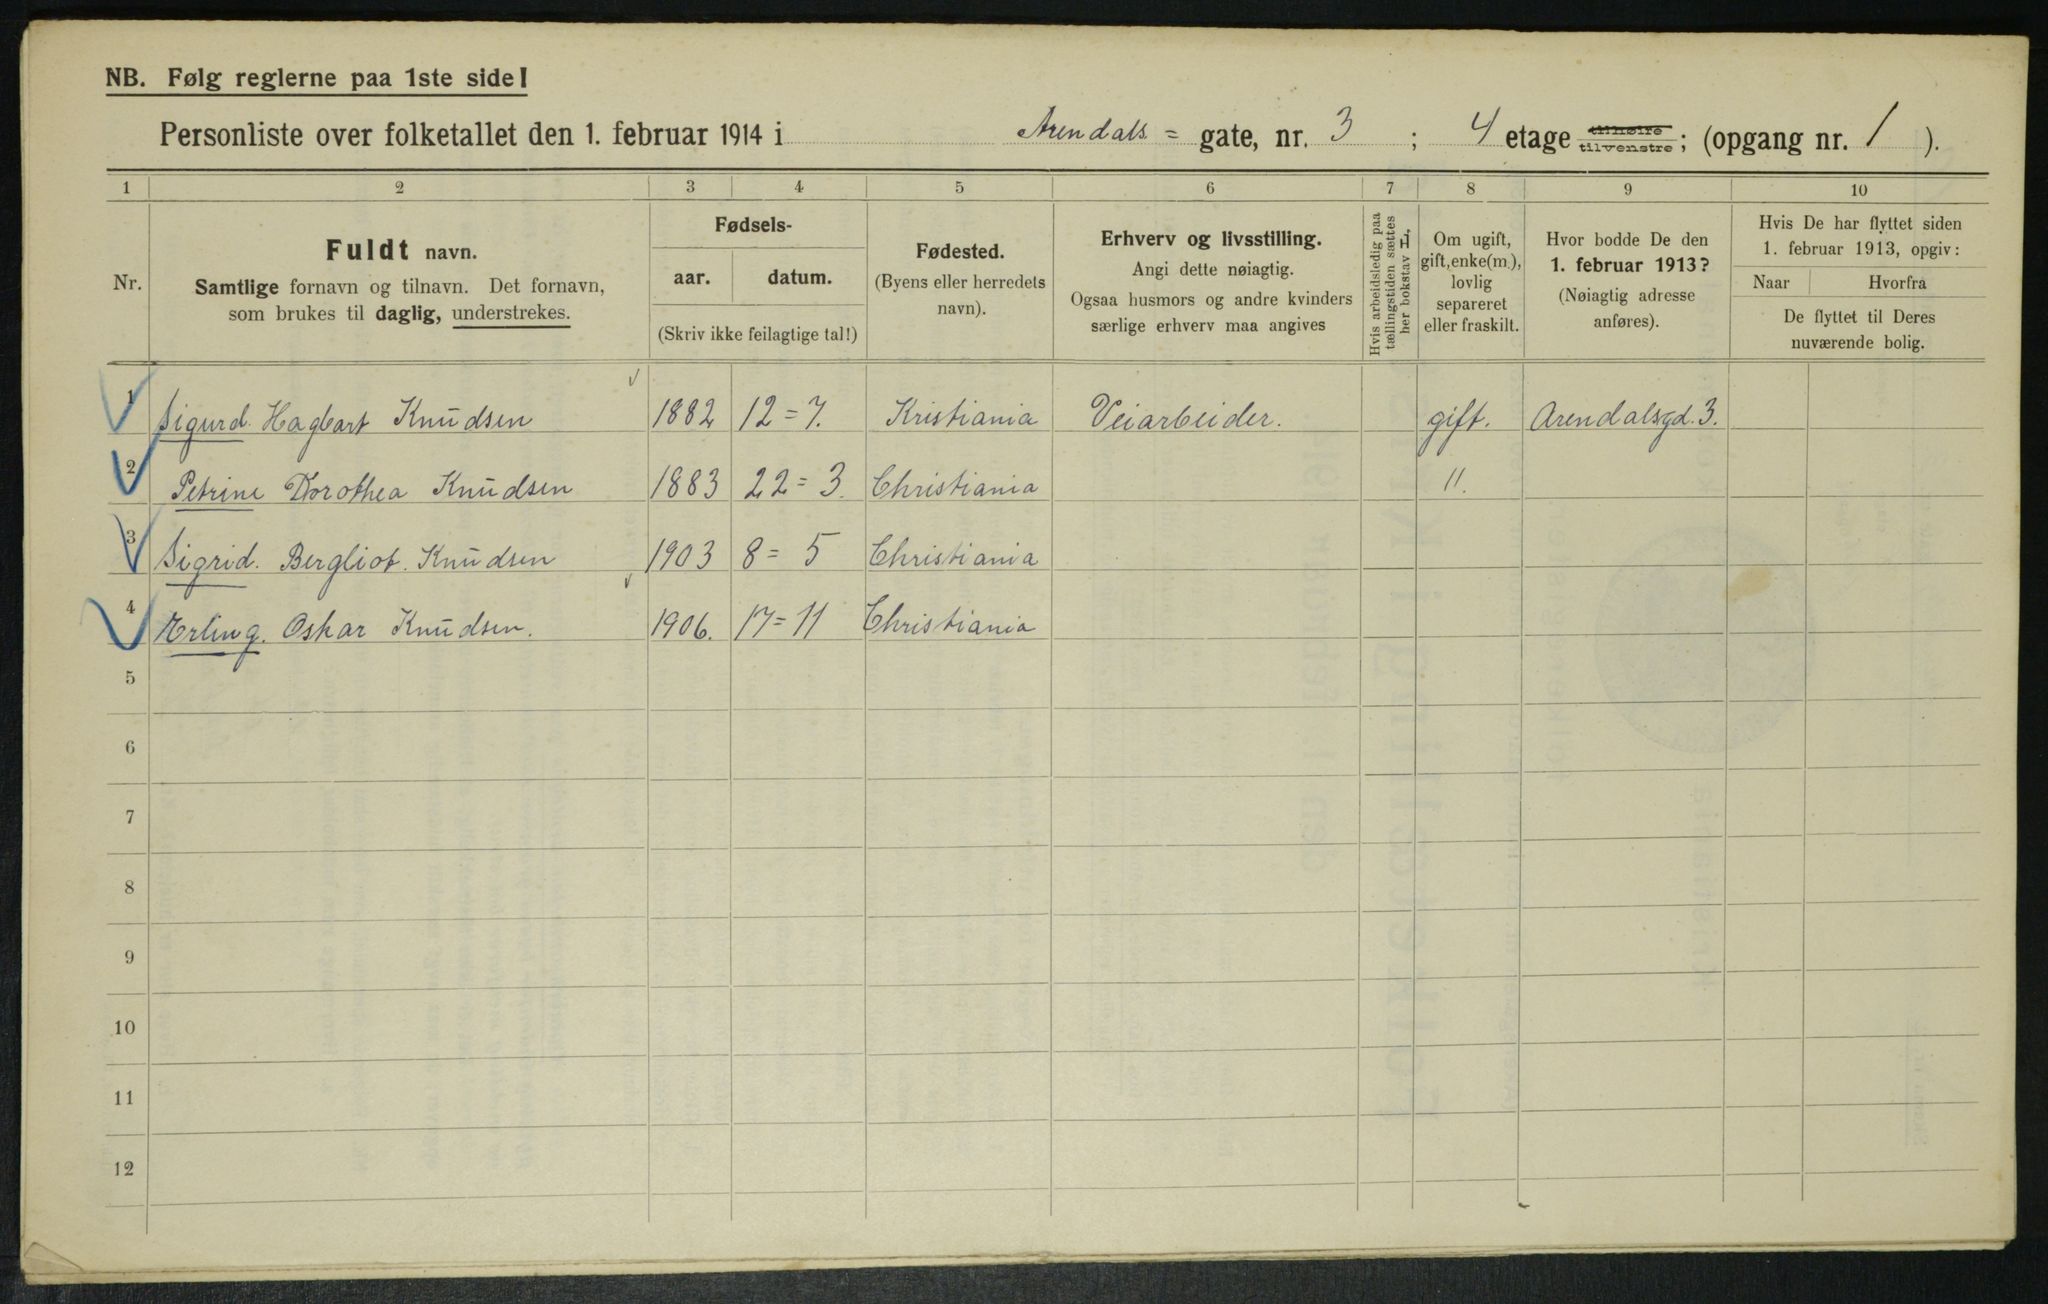 NB. Følg reglerne paa 1ste side!
Personliste over folketallet den 1. februar 1914 i Arendals = gate, nr. 3 ; 4 etage tilhøire tilvenstre ; (opgang nr. 1 ).
1 2 3 4 5 6 7 8 9 10
Nr.
Fuldt navn.
Samtlige fornavn og tilnavn. Det fornavn,
som brukes til daglig, understrekes.
Fødsels-
aar. datum.
(Skriv ikke feilagtige tal!)
Fødested.
(Byens eller herredets
navn).
Erhverv og livsstilling.
Angi dette nøiagtig.
Ogsaa husmors og andre kvinders
særlige erhverv maa angives
Hvis arbeidsledig paa
tællingstiden sættes
her bokstav L,
Om ugift,
gift, enke(m.),
lovlig
separeret
eller fraskilt.
Hvor bodde De den
1. februar 1913?
(Nøiagtig adresse
anføres).
Hvis De har flyttet siden
1. februar 1913, opgiv:
Naar Hvorfra
De flyttet til Deres
nuværende bolig.
1 Sigurd. Hagbart Knudsen 1882 12 = 7. Kristiania Veiarbeider. gift. Arendalsgd. 3.
2 Petrine Dorothea Knudsen 1883 22 = 3. Christiania 11.
3 Sigrid. Bergliot. Knudsen 1903 8 = 5 Christiania
4 Erling. Oskar Knudsen. 1906. 17 = 11 Christiania
5
6
7
8
9
10
11
12